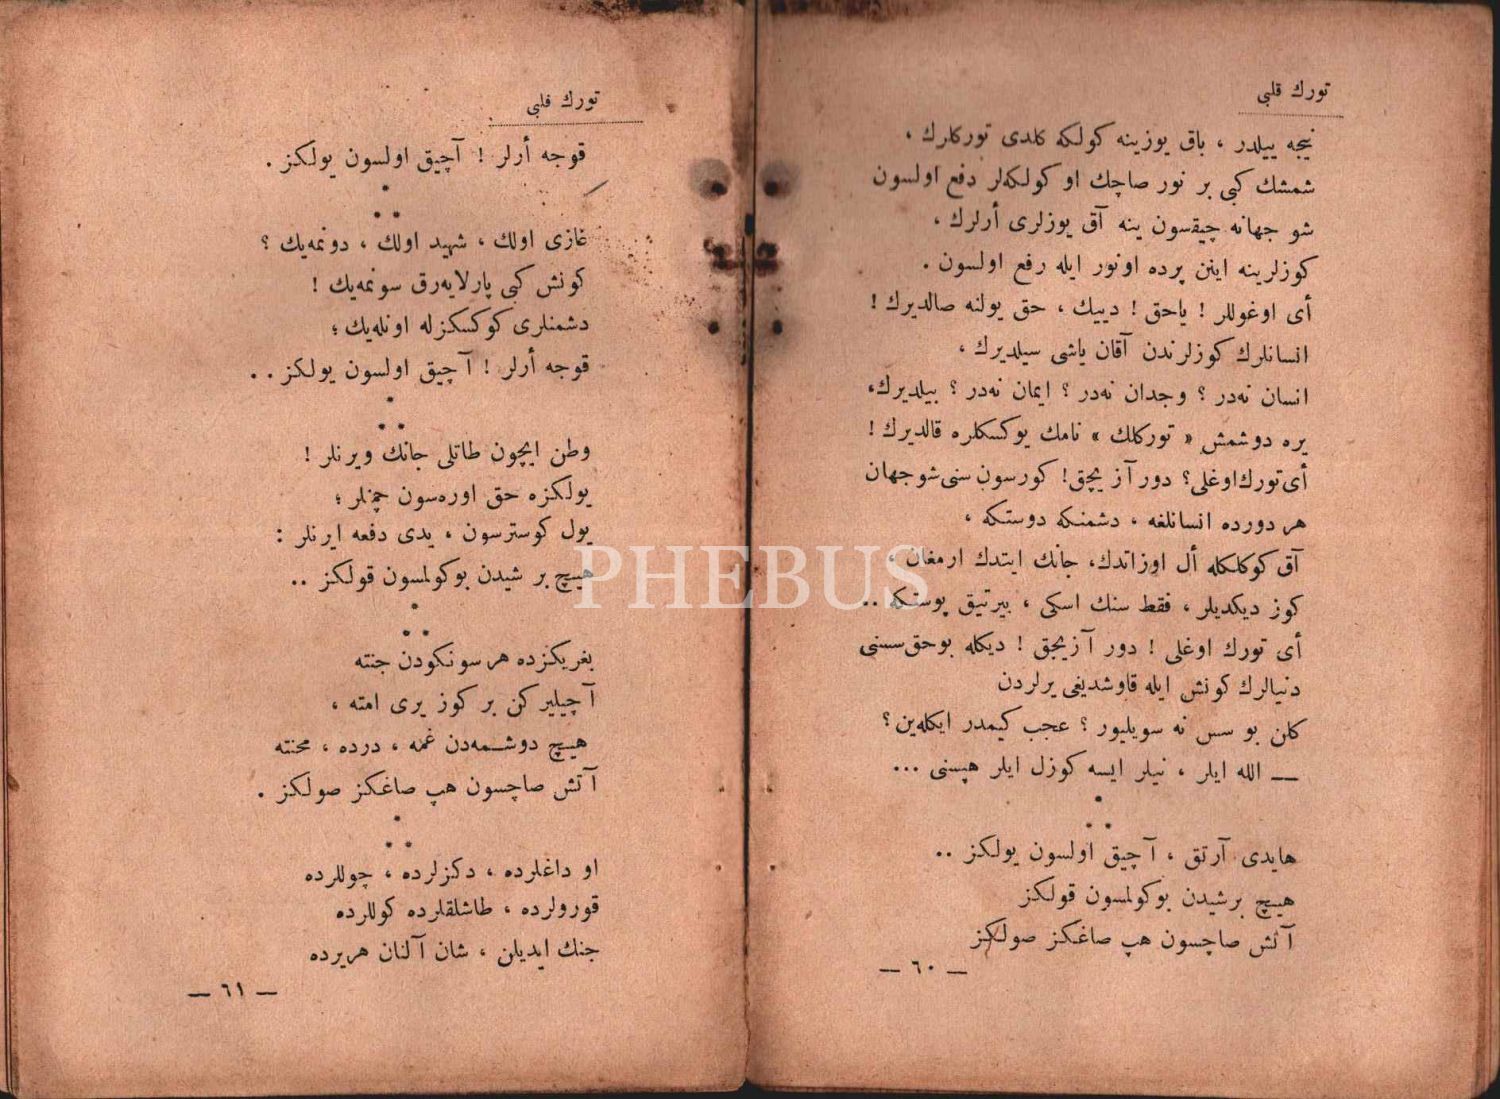 تورك قلبى
نیجه ییلدر ، باق یوزینه كولكه كلدى توركلرك ،
شمشك كبى بر نور صاچك او كولكه‌لر دفع اولسون
شو جهانه چیقسون ینه آق یوزلرى أرلرك ،
كوزلرینه اینن پرده اونور ایله رفع اولسون .
أى اوغوللر ! یاحق ! دییك ، حق یولنه صالدیرك !
انسانلرك كوزلرندن آقان یاشى سیلدیرك ،
انسان نه‌در ؟ وجدان نه‌در ؟ ایمان نه‌در ؟ بیلدیرك،
یره دوشمش « توركلك » نامك یوكسكلره قالدیرك !
أى تورك اوغلى؟ دور آز یجق! كورسون سنى شو جهان
هر دورده انسانلغه ، دشمنكه دوستكه ،
آق كوكلكله أل اوزاتدك، جانك ایتدك ارمغان ،
كوز دیكدیلر ، فقط سنك اسكى ، ییرتیق پوستكه ..
أى تورك اوغلى ! دور آزیجق ! دیكله بو حق سسنى
دنیالرك كونش ایله قاوشدیغى یرلردن
كلن بو سس نه سویلیور ؟ عجب كیمدر ایكله‌ین ؟
— الله ایلر ، نیلر ایسه كوزل ایلر هپسنى ...
هایدى آرتق ، آچیق اولسون یولكز ..
هیچ برشیدن بوكولمسون قولكز
آتش صاچسون هپ صاغكز صولكز
— ٦٠ —
تورك قلبى
قوجه أرلر ! آچیق اولسون یولكز .
غازى اولك ، شهید اولك ، دونمه‌یك ؟
كونش كبى پارلایه‌رق سونمه‌یك !
دشمنلرى كوكسكزله اوكله‌یك ؛
قوجه أرلر ! آچیق اولسون یولكز ..
وطن ایچون طاتلى جانك ویرنلر !
یولكزه حق اوره‌سون چمنلر ؛
یول كوسترسون ، یدى دفعه ایرنلر :
هیچ بر شیدن بوكولمسون قولكز ..
بغریكزده هر سونكودن جنته
آچیلیركن بر كوز یرى امته ،
هیچ دوشمه‌دن غمه ، درده ، محنته
آتش صاچسون هپ صاغكز صولكز .
او داغلرده ، دكزلرده ، چوللرده
قورولرده ، طاشلقلرده كوللرده
جنك ایدیلن ، شان آلنان هریرده
— ٦١ —
PHEBUS